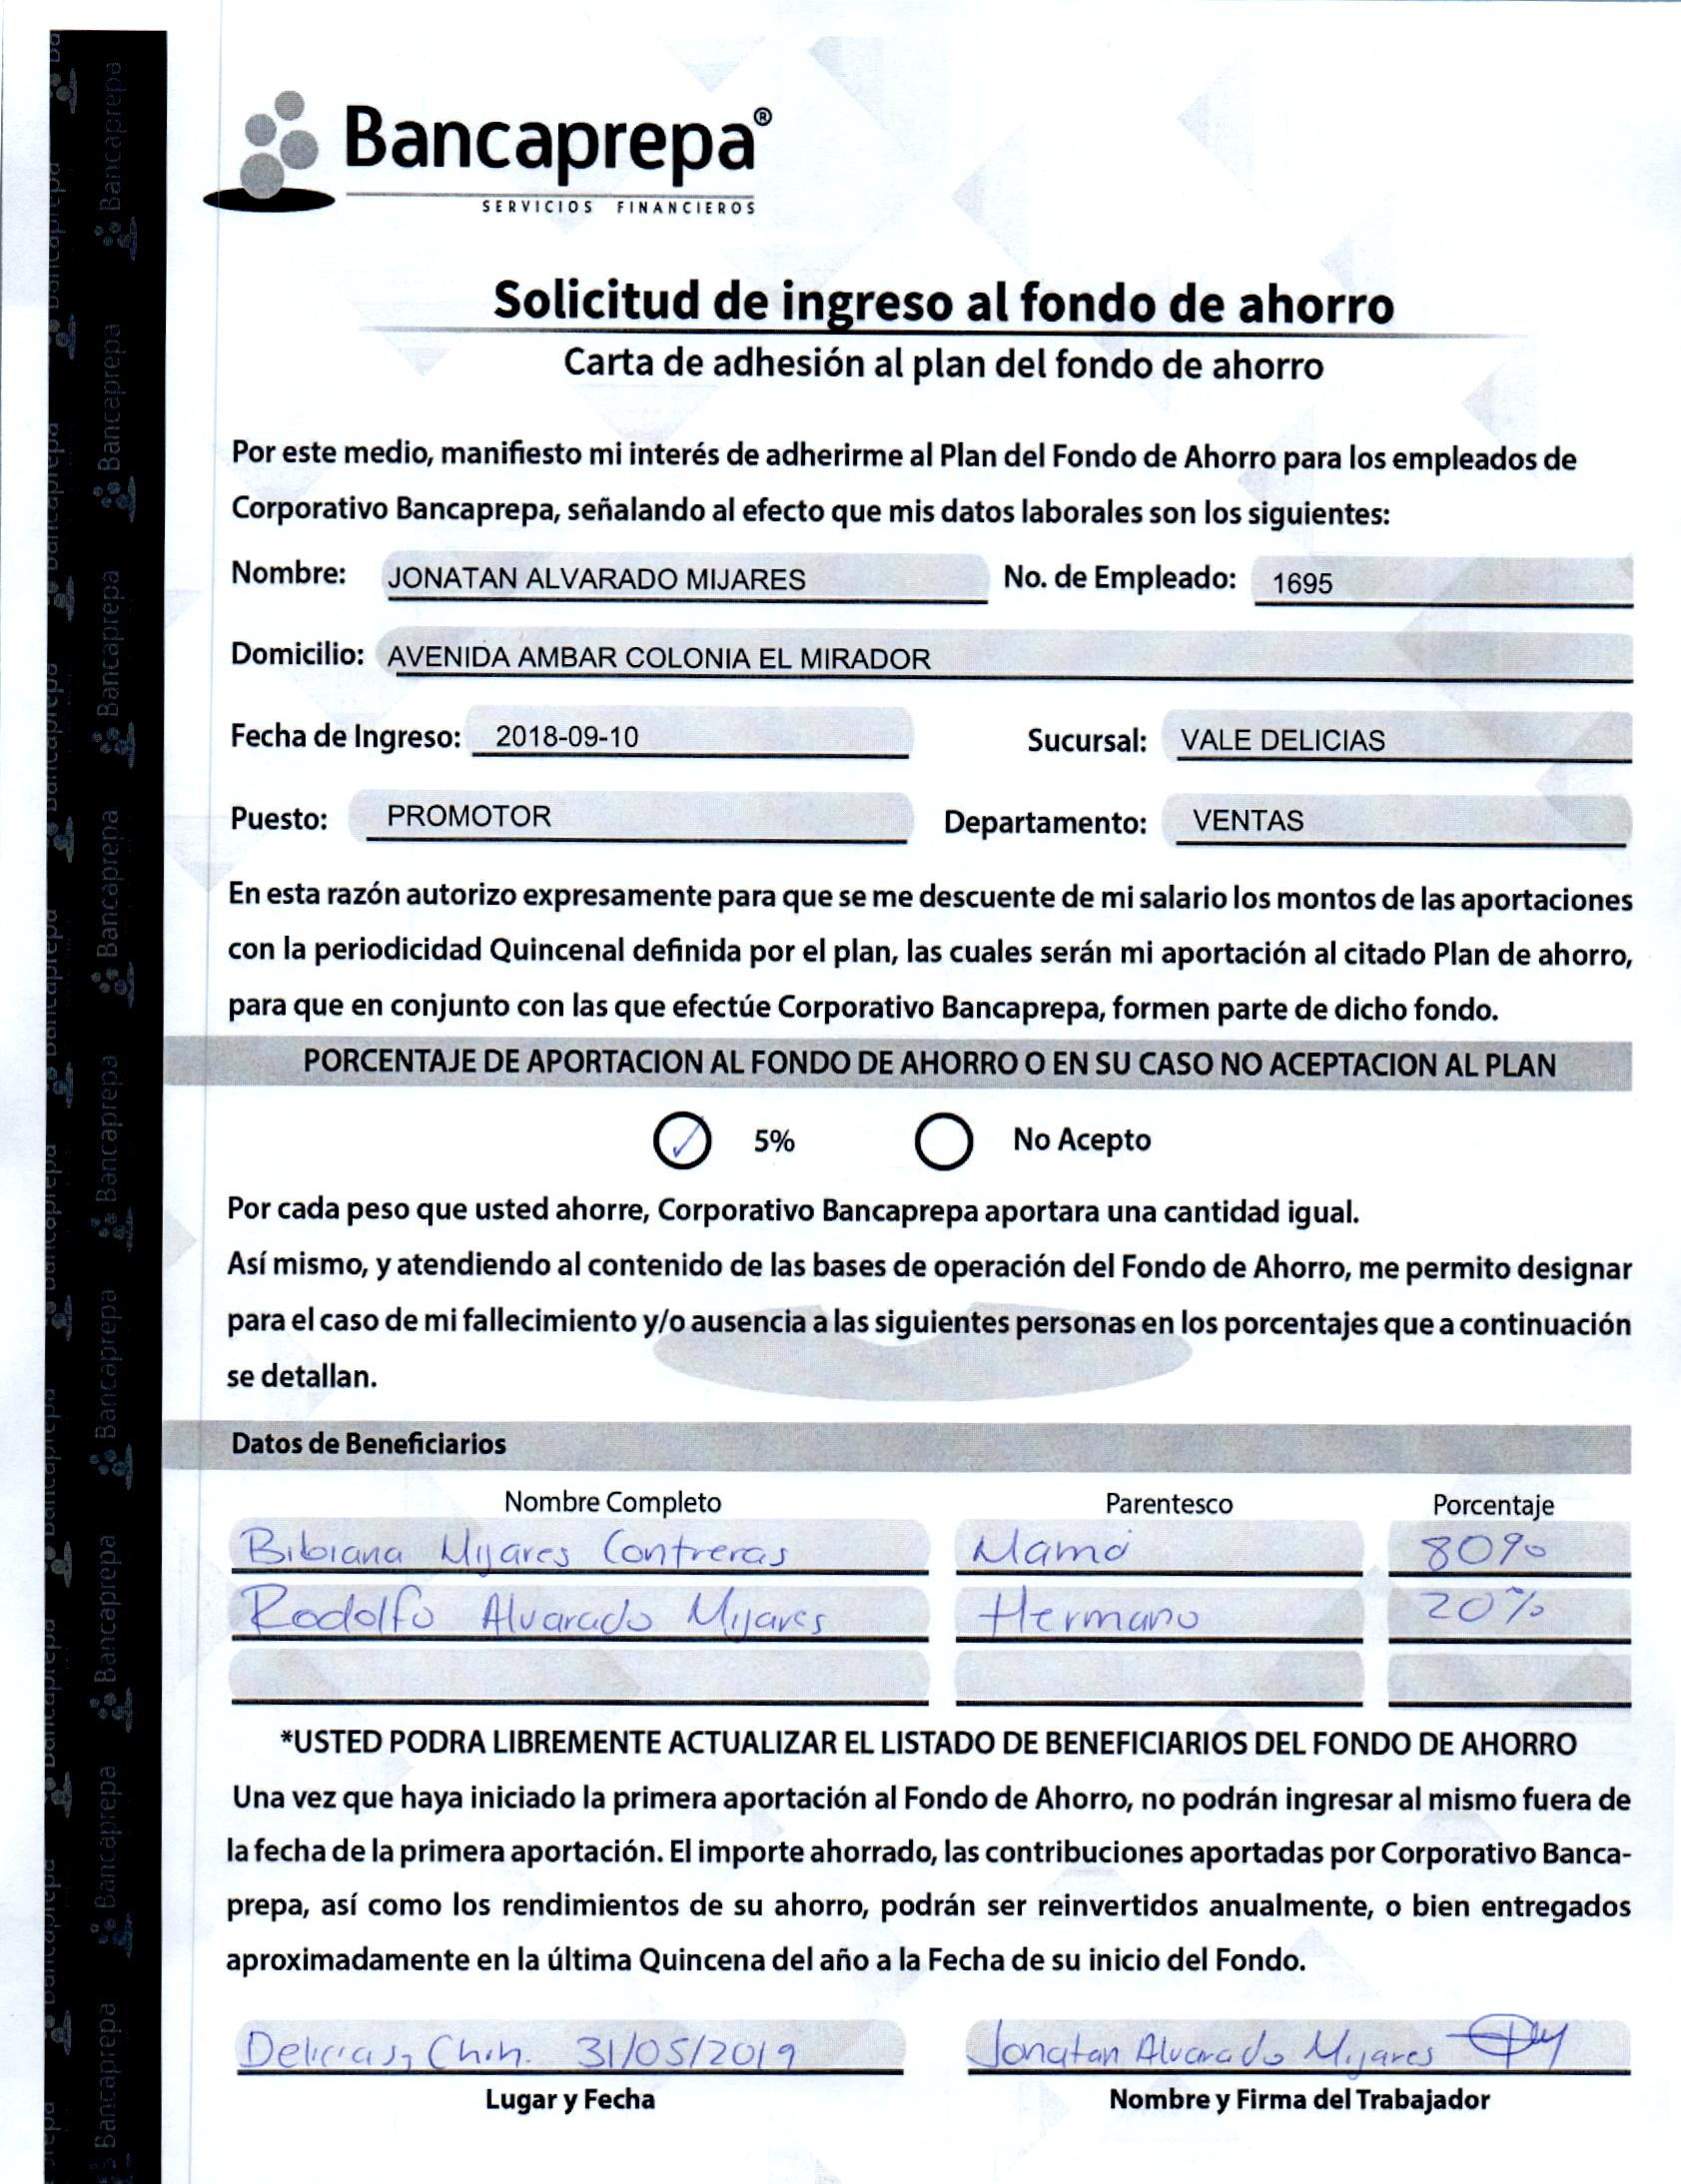 Bancaprepa®
SERVICIOS FINANCIEROS
Solicitud de ingreso al fondo de ahorro
Carta de adhesión al plan del fondo de ahorro
Por este medio, manifiesto mi interés de adherirme al Plan del Fondo de Ahorro para los empleados de
Corporativo Bancaprepa, señalando al efecto que mis datos laborales son los siguientes:
Nombre: JONATAN ALVARADO MIJARES No. de Empleado: 1695
Domicilio: AVENIDA AMBAR COLONIA EL MIRADOR
Fecha de Ingreso: 2018-09-10 Sucursal: VALE DELICIAS
Puesto: PROMOTOR Departamento: VENTAS
En esta razón autorizo expresamente para que se me descuente de mi salario los montos de las aportaciones
con la periodicidad Quincenal definida por el plan, las cuales serán mi aportación al citado Plan de ahorro,
para que en conjunto con las que efectúe Corporativo Bancaprepa, formen parte de dicho fondo.
PORCENTAJE DE APORTACION AL FONDO DE AHORRO O EN SU CASO NO ACEPTACION AL PLAN
✓ 5% No Acepto
Por cada peso que usted ahorre, Corporativo Bancaprepa aportara una cantidad igual.
Así mismo, y atendiendo al contenido de las bases de operación del Fondo de Ahorro, me permito designar
para el caso de mi fallecimiento y/o ausencia a las siguientes personas en los porcentajes que a continuación
se detallan.
Datos de Beneficiarios
Nombre Completo Parentesco Porcentaje
Bibiana Mijares Contreras Mamá 80%
Rodolfo Alvarado Mijares Hermano 20%
*USTED PODRA LIBREMENTE ACTUALIZAR EL LISTADO DE BENEFICIARIOS DEL FONDO DE AHORRO
Una vez que haya iniciado la primera aportación al Fondo de Ahorro, no podrán ingresar al mismo fuera de
la fecha de la primera aportación. El importe ahorrado, las contribuciones aportadas por Corporativo Banca-
prepa, así como los rendimientos de su ahorro, podrán ser reinvertidos anualmente, o bien entregados
aproximadamente en la última Quincena del año a la Fecha de su inicio del Fondo.
Delicias, Chih. 31/05/2019 Jonatan Alvarado Mijares
Lugar y Fecha Nombre y Firma del Trabajador